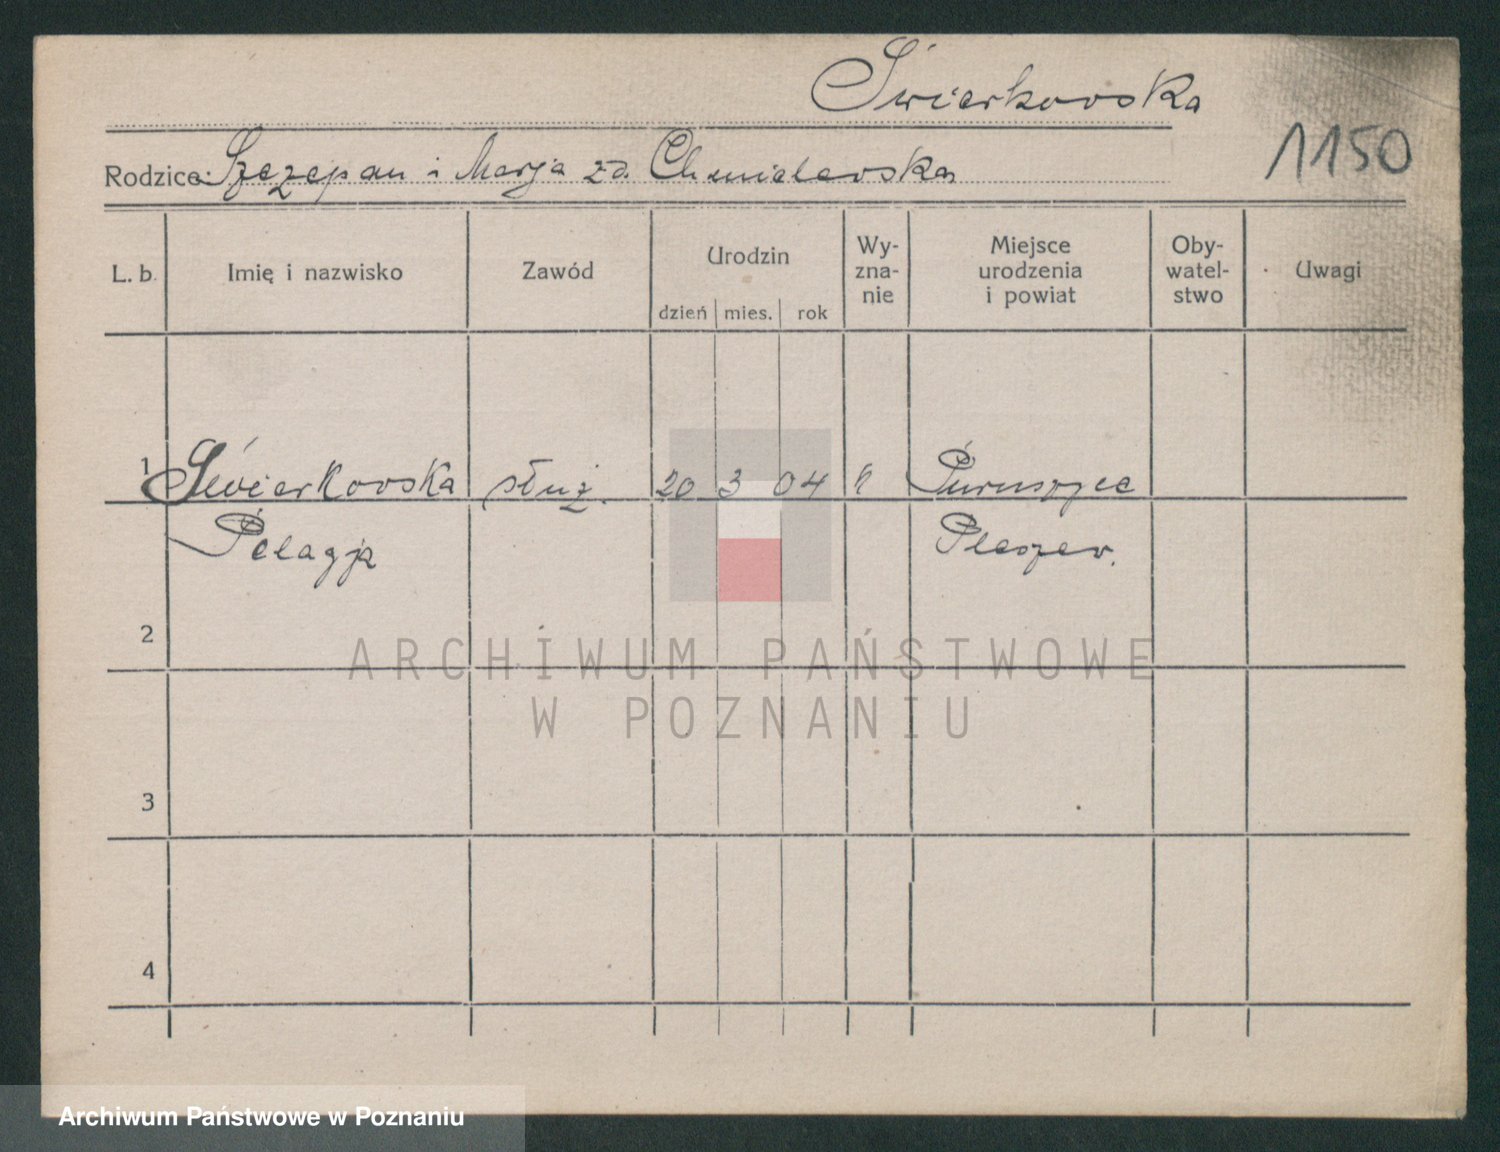 Świerkowska
1150
Rodzice: Szczepan i Marja zd. Chmielewska
L. b. Imię i nazwisko Zawód Urodzin dzień mies. rok Wy-zna-nie Miejsce urodzenia i powiat Oby-watel-stwo Uwagi
1 Świerkowska służ. 20 3 04 Puruszyce
Pelagja Pleszew.
2
ARCHIWUM PAŃSTWOWE
W POZNANIU
3
4
Archiwum Państwowe w Poznaniu